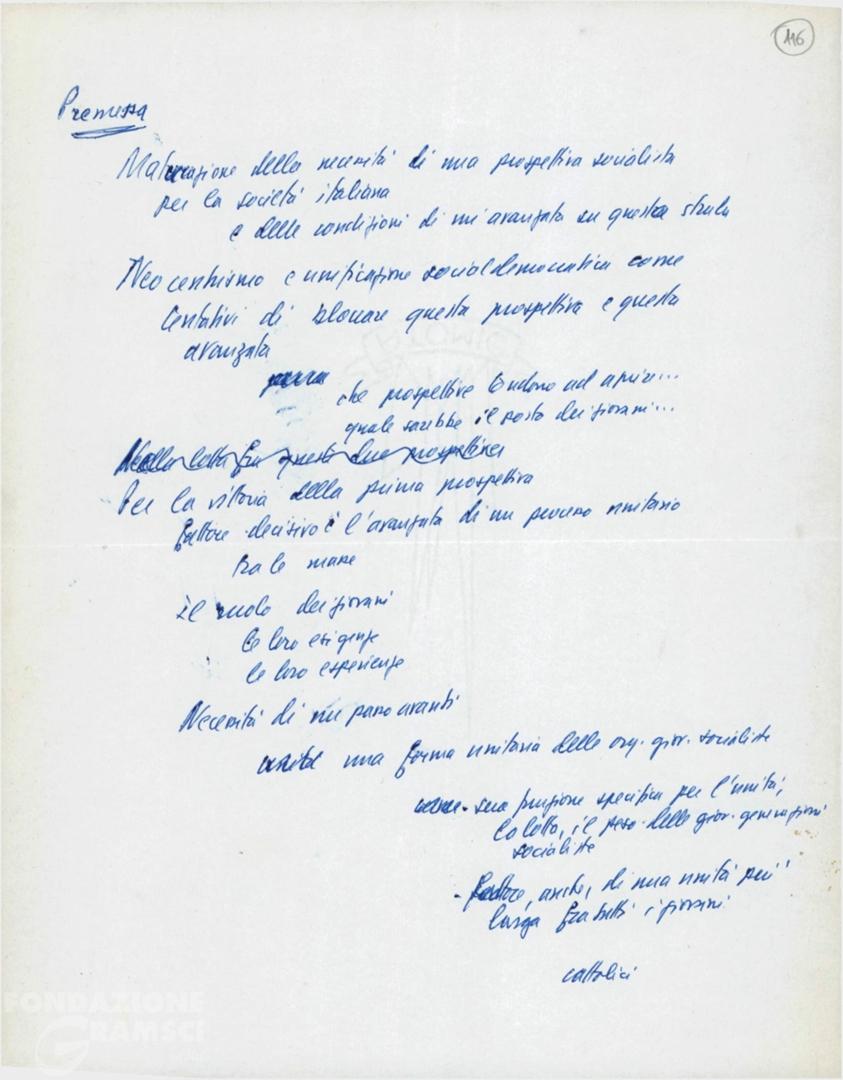 116
Premessa
Maturazione della necessità di una prospettiva socialista
per la società italiana
e delle condizioni di un'avanzata su questa strada
Neocentrismo e unificazione socialdemocratica come
tentativi di bloccare questa prospettiva e questa
avanzata
che prospettive tendono ad aprire...
quale sarebbe il posto dei giovani...
Nella lotta fra queste due prospettive
Per la vittoria della prima prospettiva
fattore decisivo è l'avanzata di un processo unitario
tra le masse
Il ruolo dei giovani
le loro esigenze
le loro esperienze
Necessità di un passo avanti
una forma unitaria delle org. giov. socialiste
- sua funzione specifica per l'unità,
la lotta, il peso delle giov. generazioni
socialiste
- fattore, anche, di una unità più
larga fra tutti i giovani
cattolici
FONDAZIONE
GRAMSCI